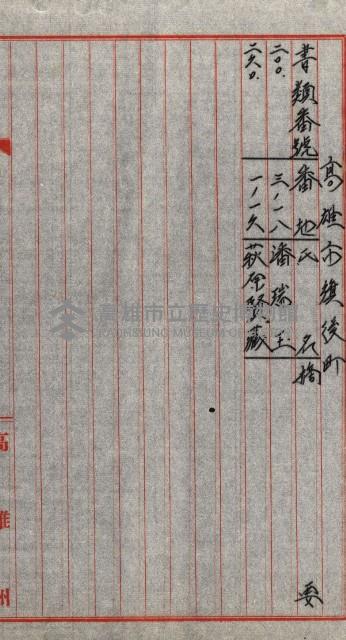 高雄市旗後町
書類番號 番地 氏名 摘要
二〇〇. 三ノ一八 潘瑞玉
二六〇. 一ノ一六 萩原賢藏
高雄州
高雄市立歷史博物館
KAOHSIUNG MUSEUM OF HISTORY